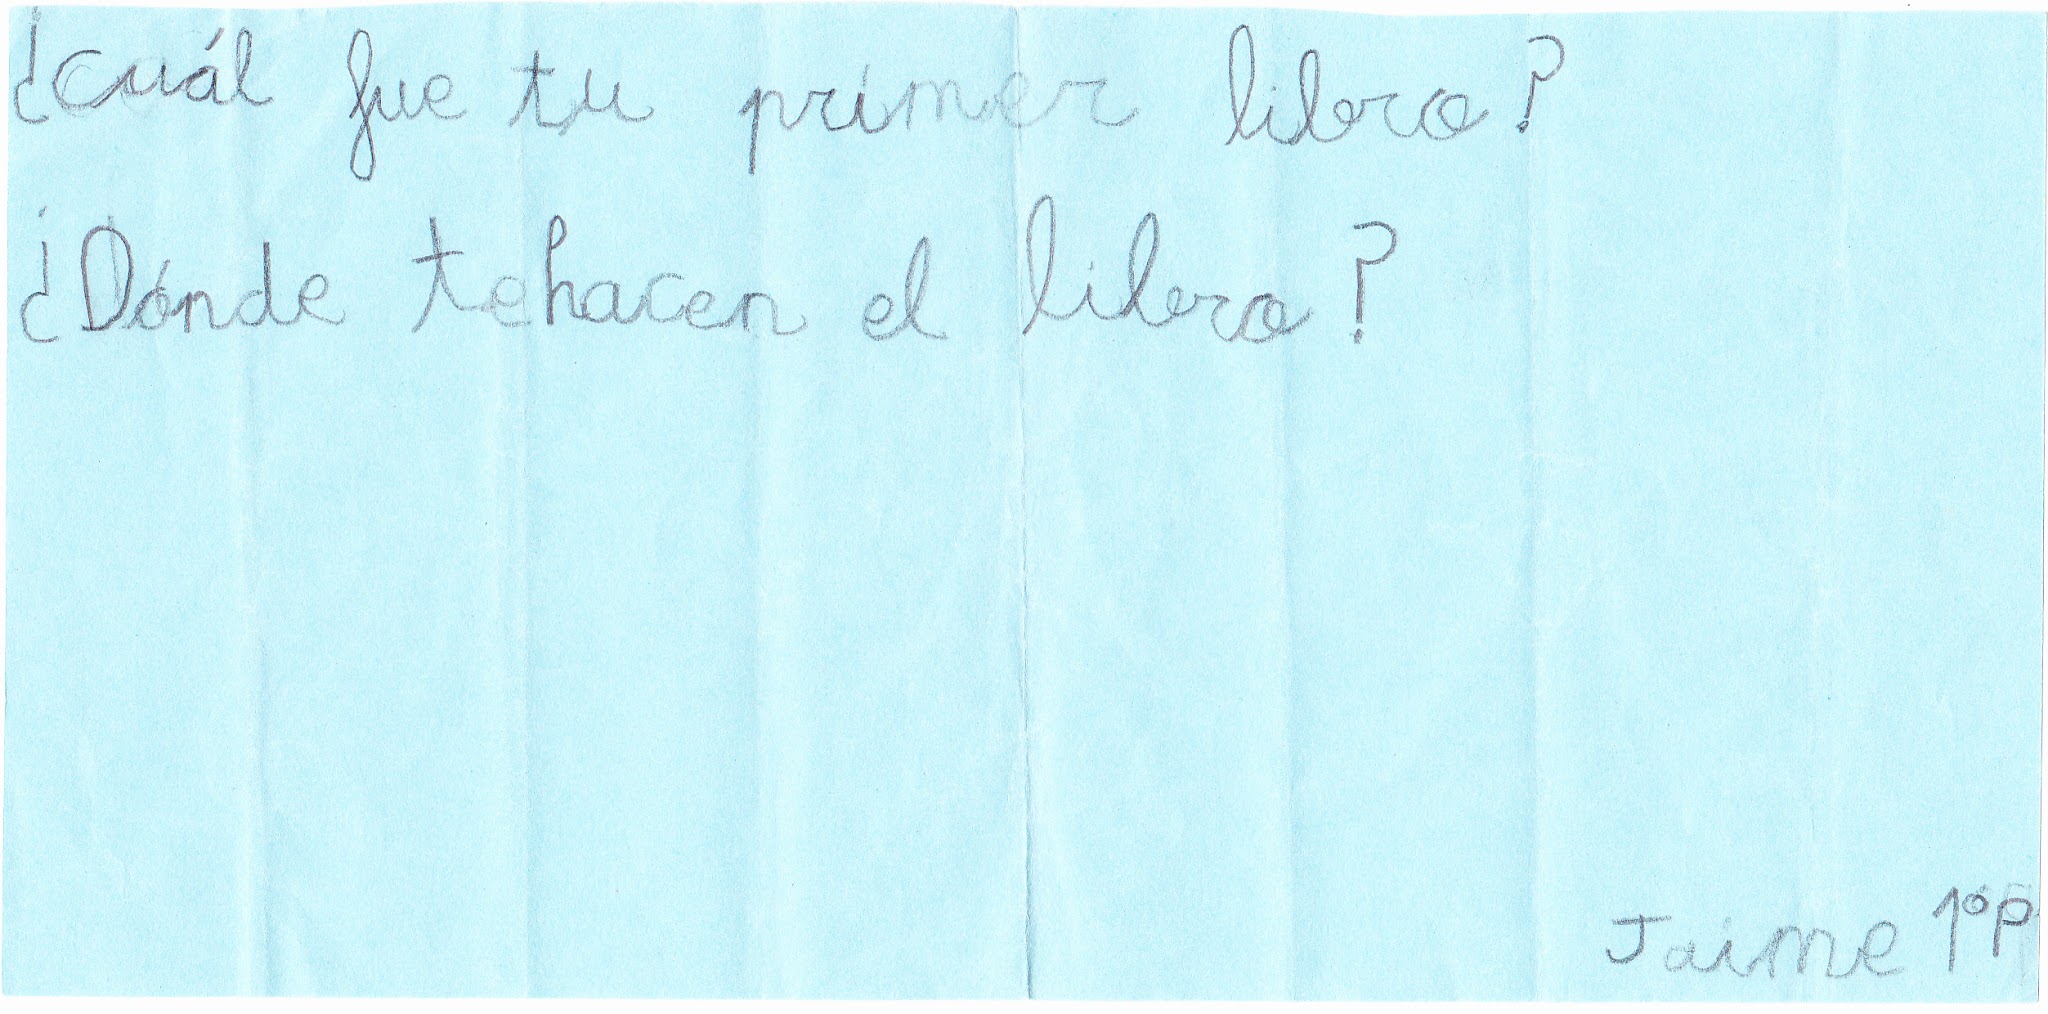 ¿cuál fue tu primer libro?
¿Dónde tehacen el libro?
Jaime 1ºP